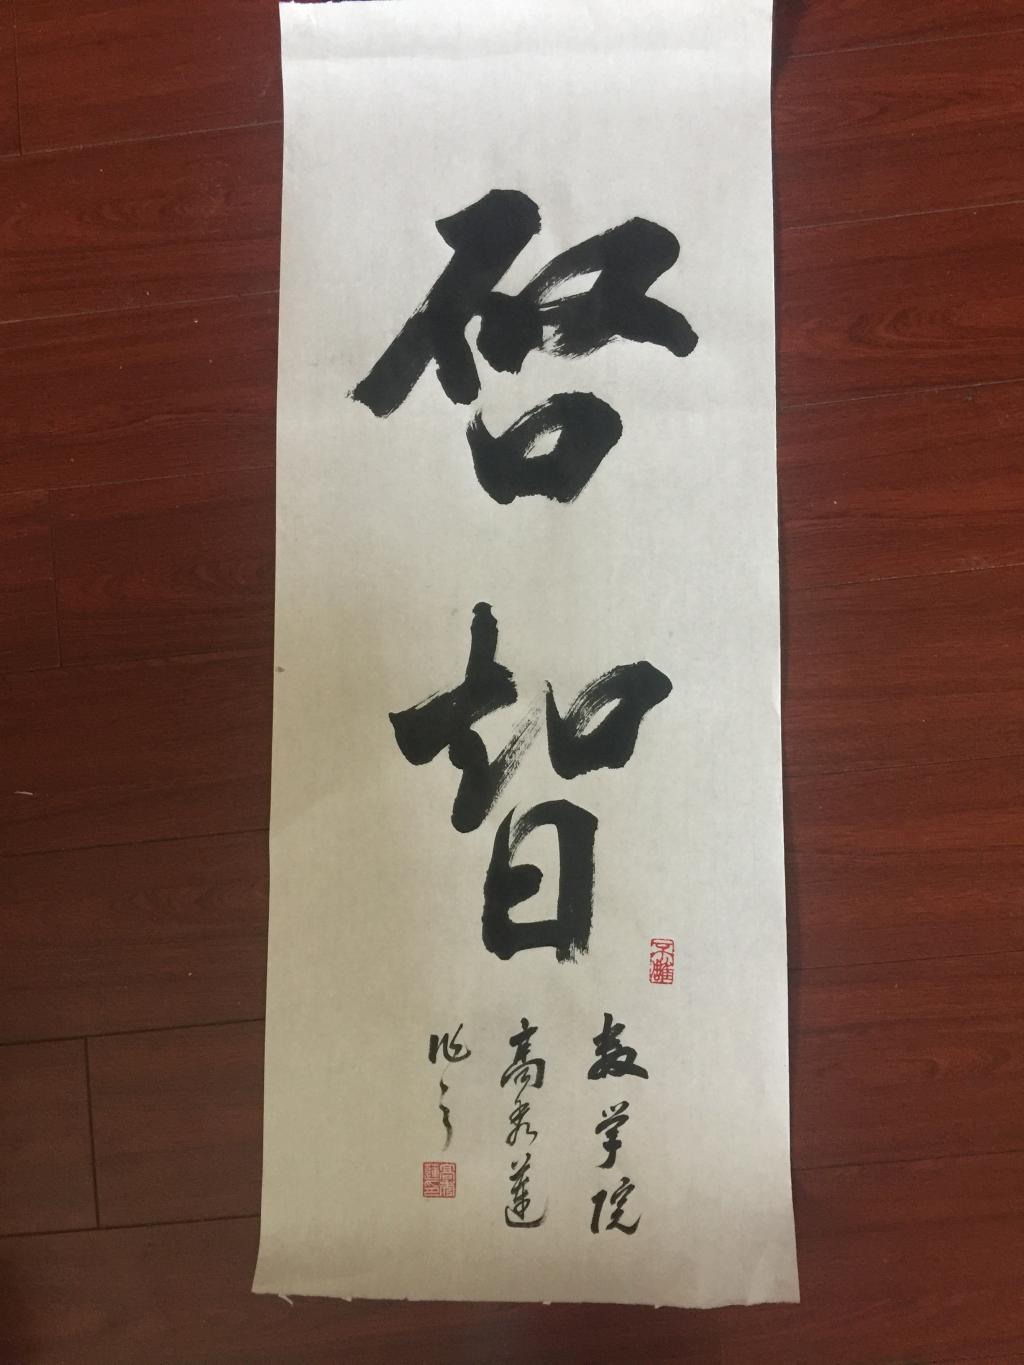 启智
数学院
高秀莲
作之